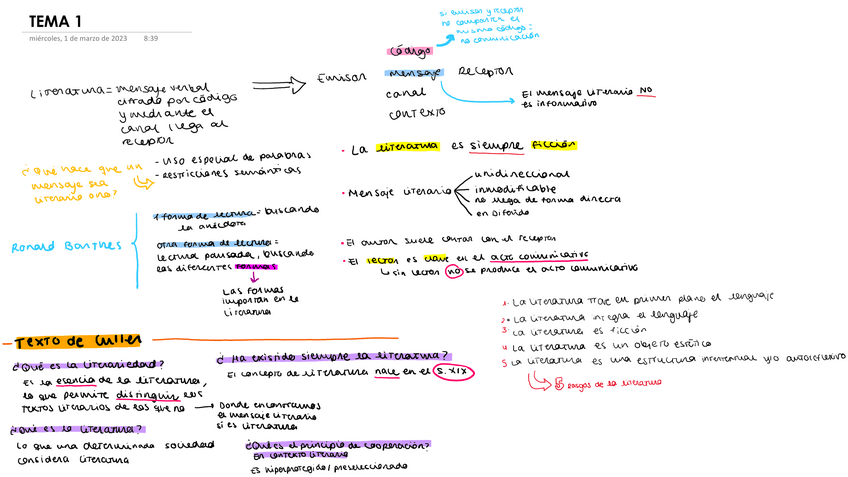 TEMA 1
miércoles, 1 de marzo de 2023 8:39
si emisor y receptor
no comparten el
mismo código:
no comunicación
código
Literatura = mensaje verbal
cifrado por código
y mediante el
canal llega al
receptor
Emisor
mensaje
receptor
canal
contexto
El mensaje literario NO
es informativo
¿Que hace que un
mensaje sea
literario o no?
- uso especial de palabras
- restricciones semánticas
· La literatura es siempre ficción
· Mensaje literario
unidireccional
inmodificable
no llega de forma directa
en diferido
Ronald Barthes
1 forma de lectura = buscando
la anécdota
otra forma de lectura =
lectura pausada, buscando
las diferentes formas
Las formas
importan en la
literatura
· El autor suele contar con el receptor
· El lector es clave en el acto comunicativo
sin lector no se produce el acto comunicativo
1. La literatura trae en primer plano el lenguaje
2. La literatura integra el lenguaje
3. La literatura es ficción
4. La literatura es un objeto estético
5. La literatura es una estructura intertextual y/o autorreflexivo
5 rasgos de la literatura
- TEXTO de Culler
¿Qué es la literariedad?
Es la esencia de la literatura,
lo que permite distinguir los
textos literarios de los que no
Donde encontramos
el mensaje literario
si es literatura
¿Qué es la literatura?
Lo que una determinada sociedad
considera literatura
¿Ha existido siempre la literatura?
El concepto de literatura nace en el S. XIX
¿Cuál es el principio de cooperación?
En contexto literario
Es hiperprotegido / preseleccionado